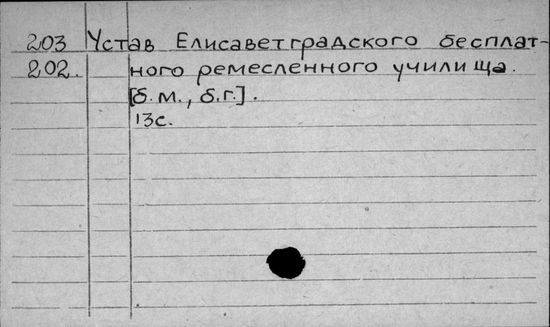 203 Устав Елисаветградского бесплат-
202. ного ремесленного училища.
[б.м., б.г.].
13с.